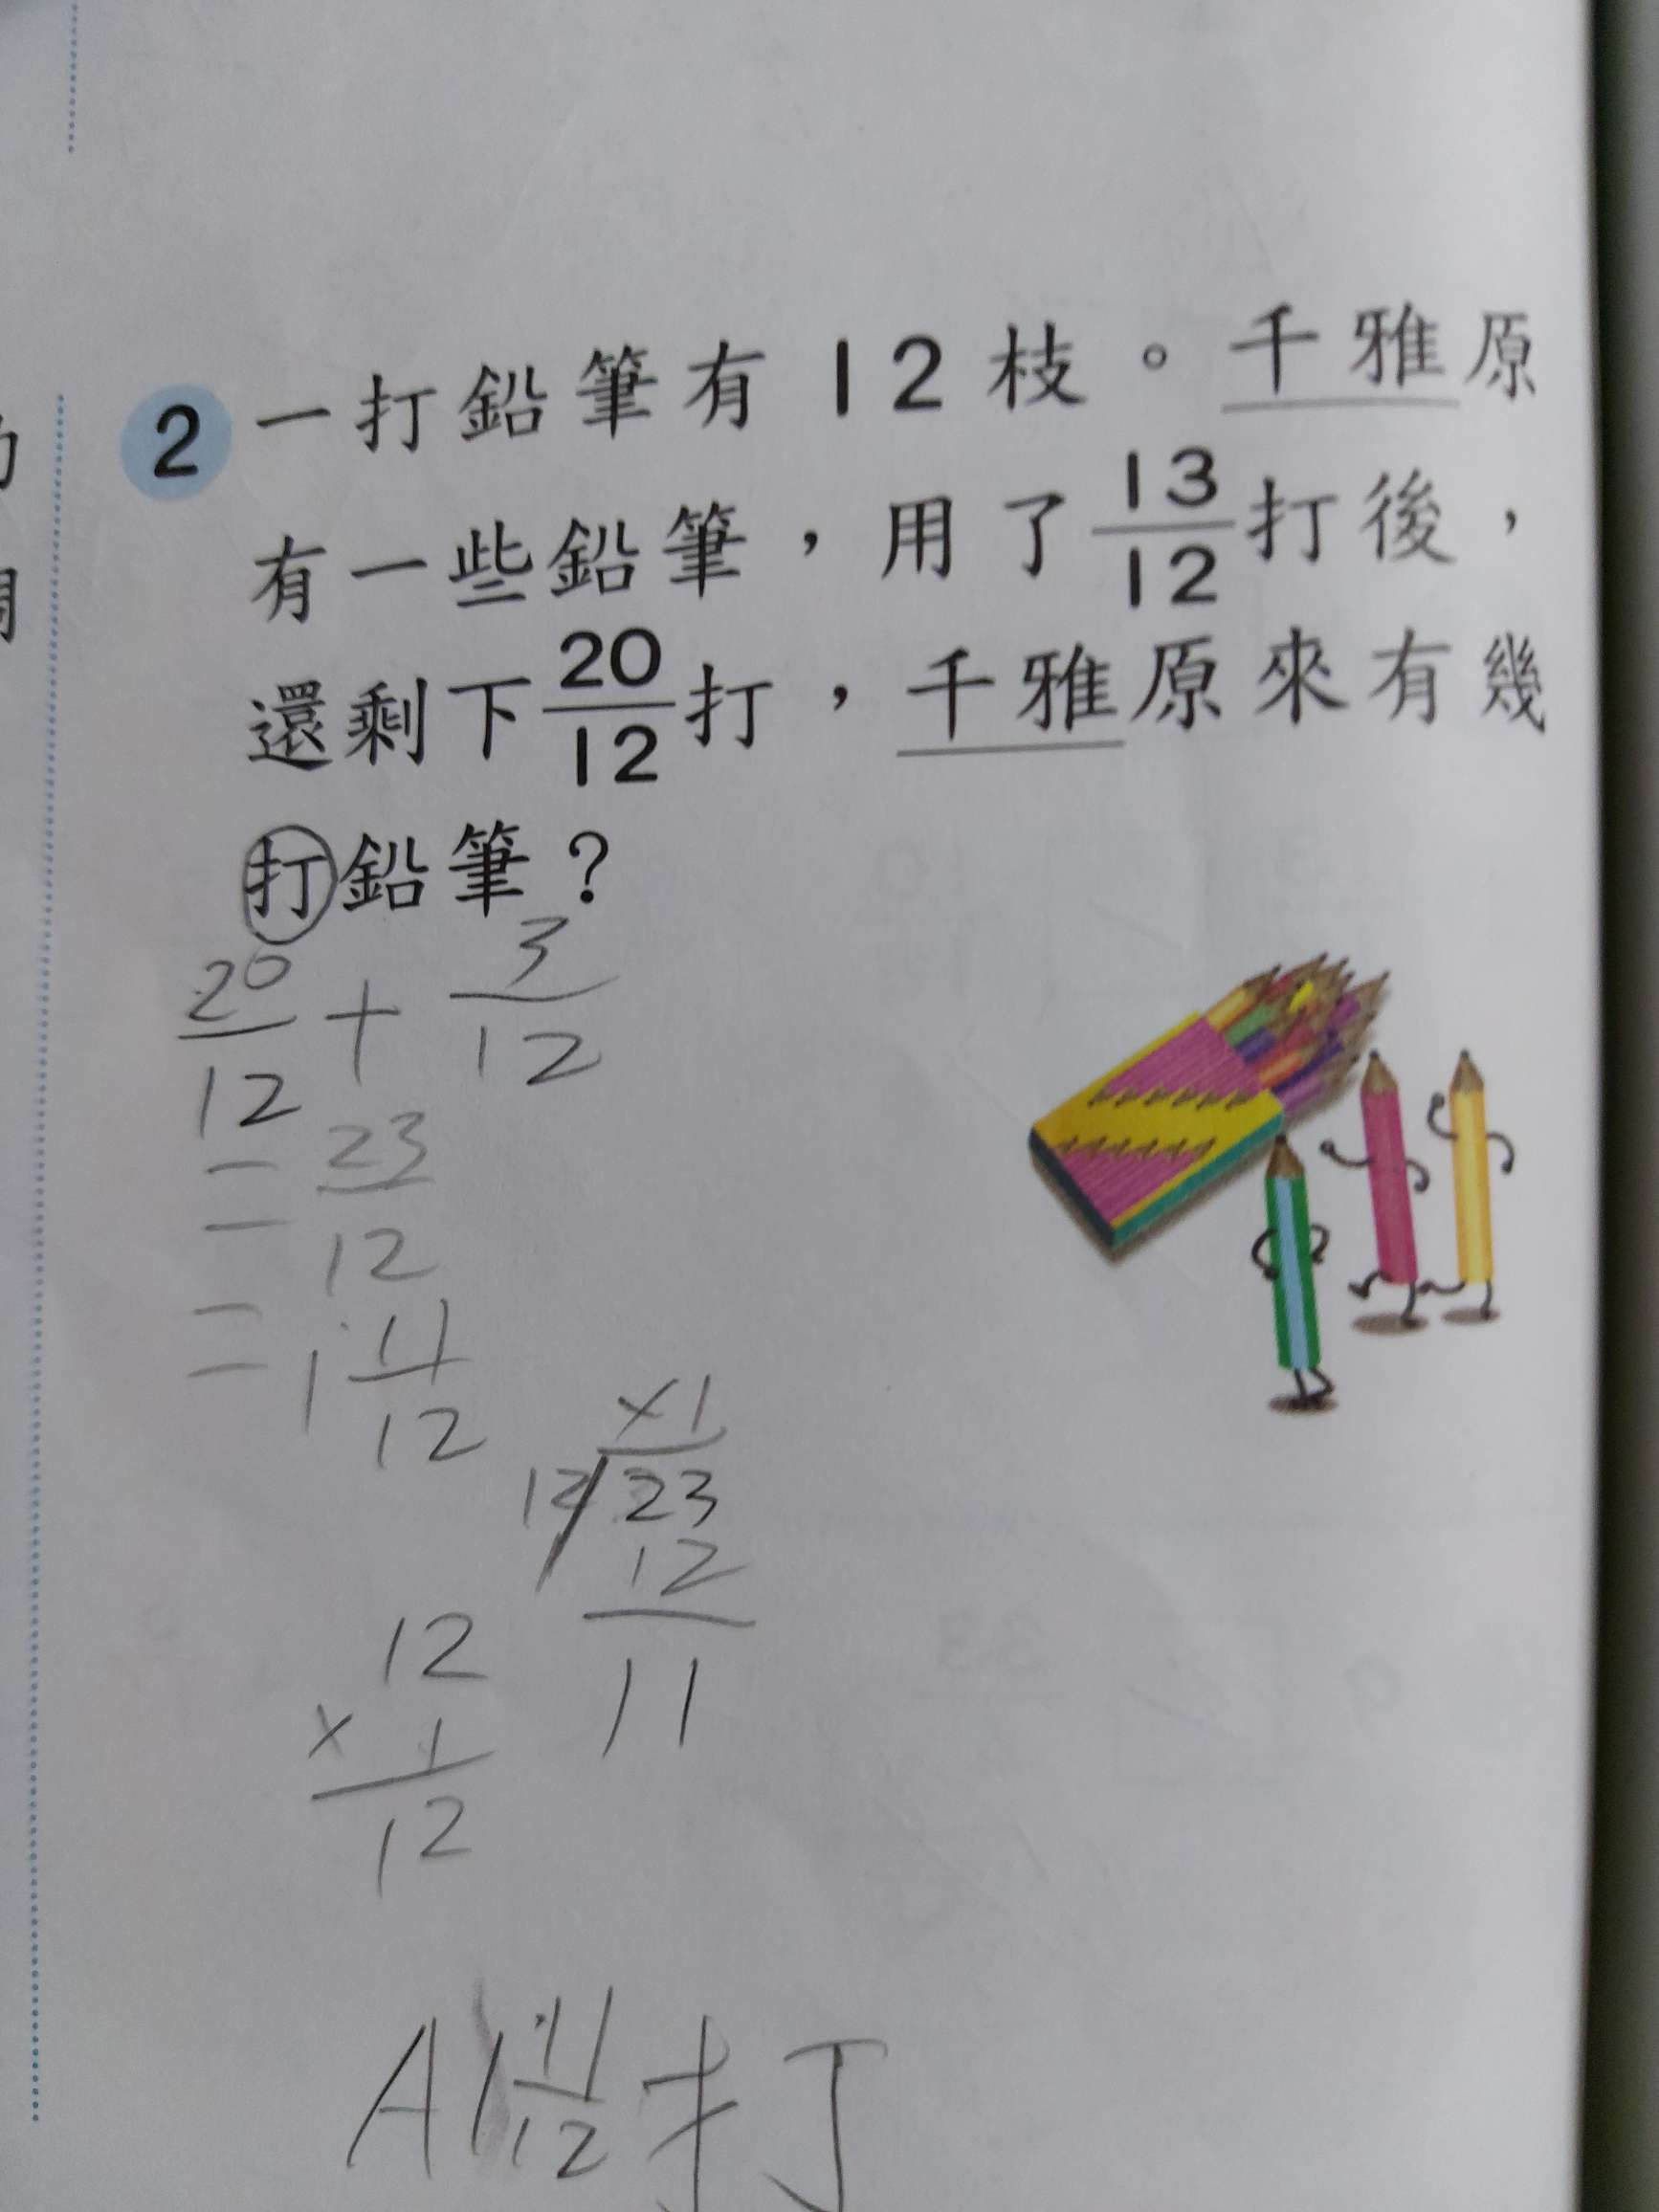 2 一打鉛筆有12枝。千雅原
有一些鉛筆,用了13/12打後,
還剩下20/12打,千雅原來有幾
打鉛筆?
20/12 + 3/12
= 23/12
= 1 11/12
×1
12 23
12
11
12
× 1
12
A 1 11/12 打